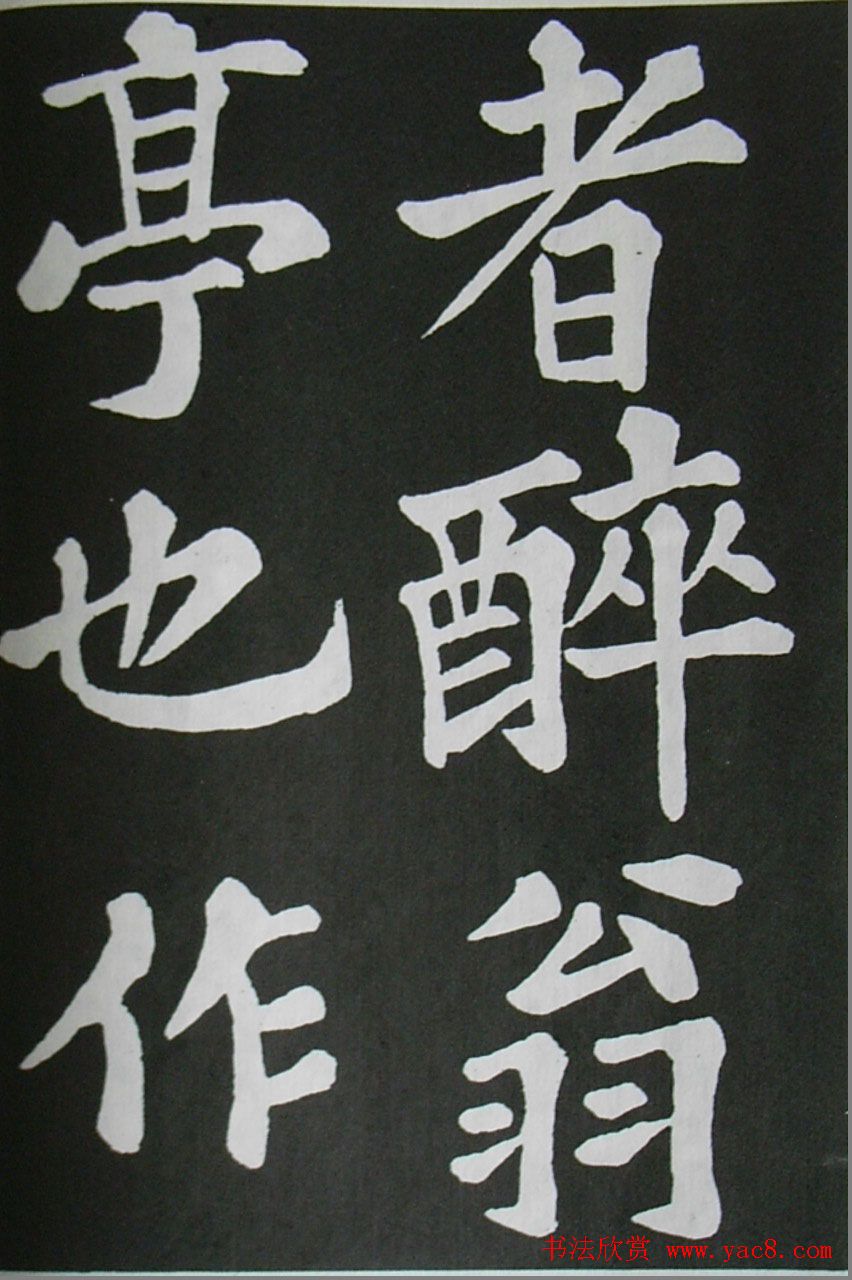 者醉翁
亭也作
书法欣赏 www.yac8.com